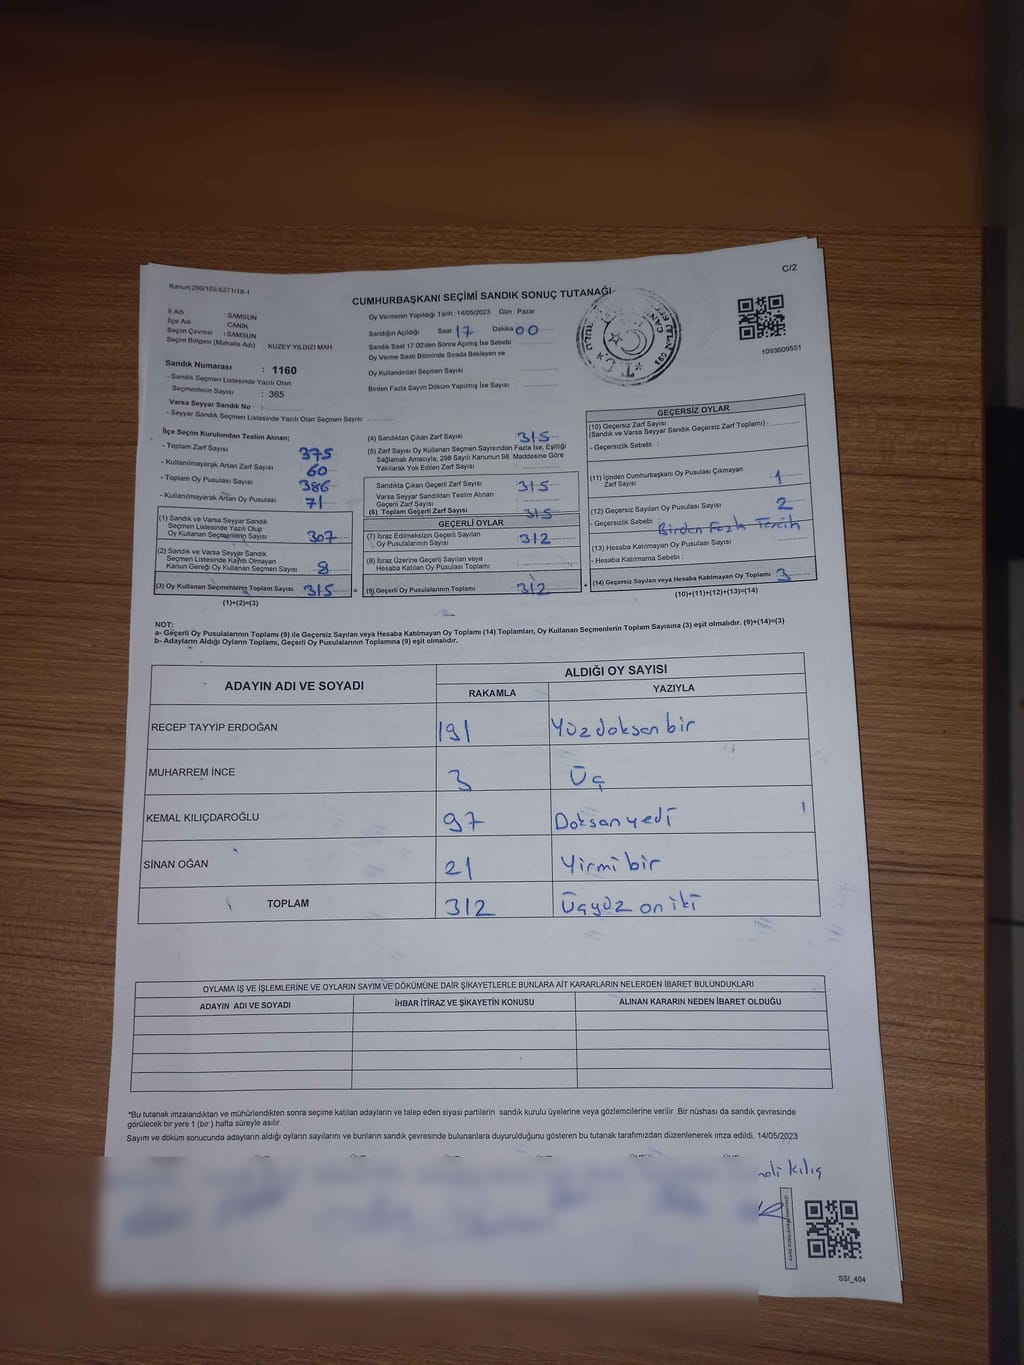 Kanun;298/105,6271/18-1
C/2
CUMHURBAŞKANI SEÇİMİ SANDIK SONUÇ TUTANAĞI
İl Adı : SAMSUN
İlçe Adı : CANİK
Seçim Çevresi : SAMSUN
Seçim Bölgesi (Mahalle Adı) : KUZEY YILDIZI MAH.
Oy Vermenin Yapıldığı Tarih : 14/05/2023 Gün : Pazar
Sandığın Açıldığı Saat 17 Dakika 00
Sandık Saat 17:00'den Sonra Açımış İse Sebebi :
Oy Verme Saati Bitiminde Sırada Bekleyen ve
Oy Kullandırılan Seçmen Sayısı :
Birden Fazla Sayım Döküm Yapılmış İse Sayısı :
1093609551
Sandık Numarası : 1160
- Sandık Seçmen Listesinde Yazılı Olan
Seçmenlerin Sayısı : 365
Varsa Seyyar Sandık No :
- Seyyar Sandık Seçmen Listesinde Yazılı Olan Seçmen Sayısı :
İlçe Seçim Kurulundan Teslim Alınan;
- Toplam Zarf Sayısı : 375
- Kullanılmayarak Artan Zarf Sayısı : 60
- Toplam Oy Pusulası Sayısı : 386
- Kullanılmayarak Artan Oy Pusulası : 71
(1) Sandık ve Varsa Seyyar Sandık
Seçmen Listesinde Yazılı Olup
Oy Kullanan Seçmenlerin Sayısı : 307
(2) Sandık ve Varsa Seyyar Sandık
Seçmen Listesinde Kaydı Olmayan
Kanun Gereği Oy Kullanan Seçmen Sayısı : 8
(3) Oy Kullanan Seçmenlerin Toplam Sayısı : 315
(1)+(2)=(3)
(4) Sandıktan Çıkan Zarf Sayısı : 315
(5) Zarf Sayısı Oy Kullanan Seçmen Sayısından Fazla İse, Eşitliği
Sağlamak Amacıyla, 298 Sayılı Kanunun 98. Maddesine Göre
Yakılarak Yok Edilen Zarf Sayısı :
Sandıkta Çıkan Geçerli Zarf Sayısı : 315
Varsa Seyyar Sandıktan Teslim Alınan
Geçerli Zarf Sayısı :
(6) Toplam Geçerli Zarf Sayısı : 315
GEÇERLİ OYLAR
(7) İtiraz Edilmeksizin Geçerli Sayılan
Oy Pusulalarının Sayısı : 312
(8) İtiraz Üzerine Geçerli Sayılan veya
Hesaba Katılan Oy Pusulası Toplamı :
(9) Geçerli Oy Pusulalarının Toplamı : 312
GEÇERSİZ OYLAR
(10) Geçersiz Zarf Sayısı
(Sandık ve Varsa Seyyar Sandık Geçersiz Zarf Toplamı) :
- Geçersizlik Sebebi :
(11) İçinden Cumhurbaşkanı Oy Pusulası Çıkmayan
Zarf Sayısı : 1
(12) Geçersiz Sayılan Oy Pusulası Sayısı : 2
- Geçersizlik Sebebi : Birden Fazla Tercih
(13) Hesaba Katılmayan Oy Pusulası Sayısı :
- Hesaba Katılmama Sebebi :
(14) Geçersiz Sayılan veya Hesaba Katılmayan Oy Toplamı : 3
(10)+(11)+(12)+(13)=(14)
NOT:
a- Geçerli Oy Pusulalarının Toplamı (9) ile Geçersiz Sayılan veya Hesaba Katılmayan Oy Toplamı (14) Toplamları, Oy Kullanan Seçmenlerin Toplam Sayısına (3) eşit olmalıdır. (9)+(14)=(3)
b- Adayların Aldığı Oyların Toplamı, Geçerli Oy Pusulalarının Toplamına (9) eşit olmalıdır.
ADAYIN ADI VE SOYADI
ALDIĞI OY SAYISI
RAKAMLA YAZIYLA
RECEP TAYYİP ERDOĞAN 191 Yüzdoksan bir
MUHARREM İNCE 3 Üç
KEMAL KILIÇDAROĞLU 97 Doksan yedi
SİNAN OĞAN 21 Yirmi bir
TOPLAM 312 Üçyüz on iki
OYLAMA İŞ VE İŞLEMLERİNE VE OYLARIN SAYIM VE DÖKÜMÜNE DAİR ŞİKAYETLERLE BUNLARA AİT KARARLARIN NELERDEN İBARET BULUNDUKLARI
ADAYIN ADI VE SOYADI İHBAR İTİRAZ VE ŞİKAYETİN KONUSU ALINAN KARARIN NEDEN İBARET OLDUĞU
*Bu tutanak imzalandıktan ve mühürlendikten sonra seçime katılan adayların ve talep eden siyasi partilerin sandık kurulu üyelerine veya gözlemcilerine verilir .Bir nüshası da sandık çevresinde
görülecek bir yere 1 (bir ) hafta süreyle asılır.
Sayım ve döküm sonucunda adayların aldığı oyların sayılarını ve bunların sandık çevresinde bulunanlara duyurulduğunu gösteren bu tutanak tarafımızdan düzenlenerek imza edildi. 14/05/2023
Kılıç
SSI_404